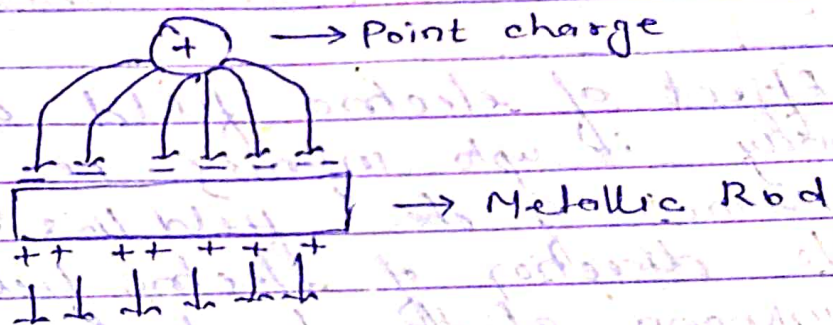 + → Point charge
− − − − − − −
→ Metallic Rod
+ + + + + + +